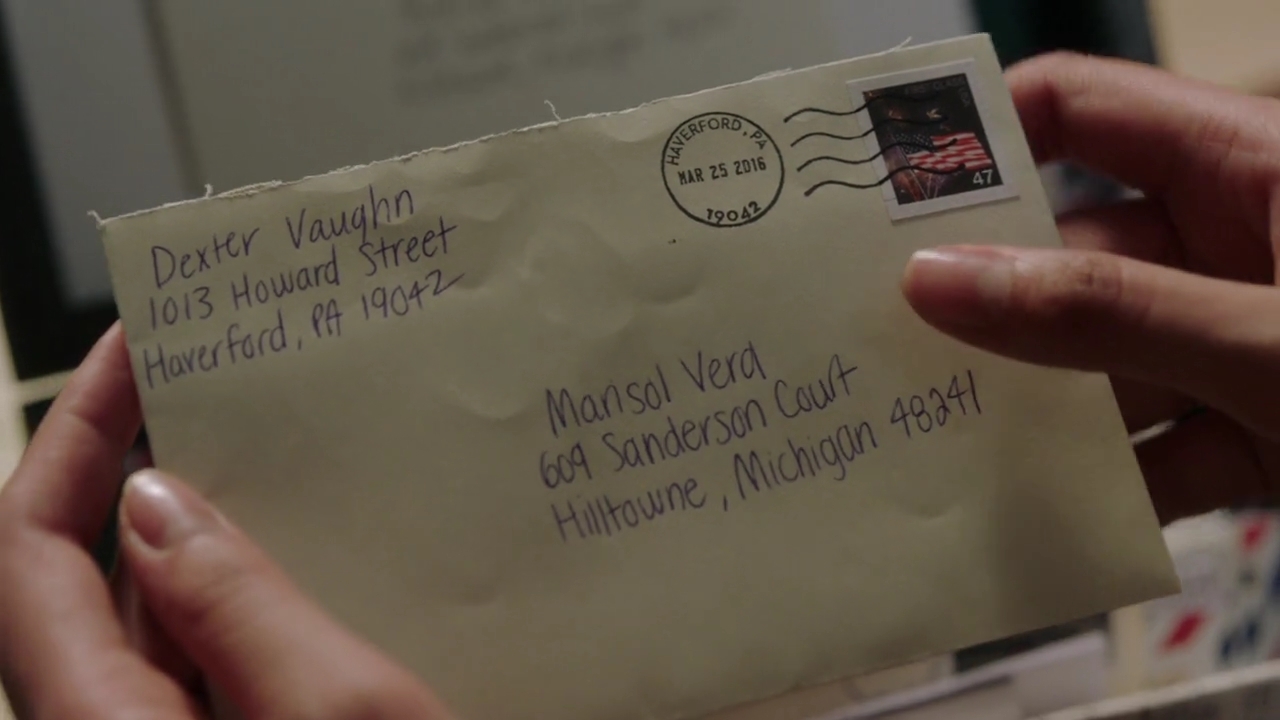 Dexter Vaughn
1013 Howard Street
Haverford, PA 19042
HAVERFORD, PA
MAR 25 2016
19042
47
Marisol Vera
609 Sanderson Court
Hilltowne, Michigan 48241